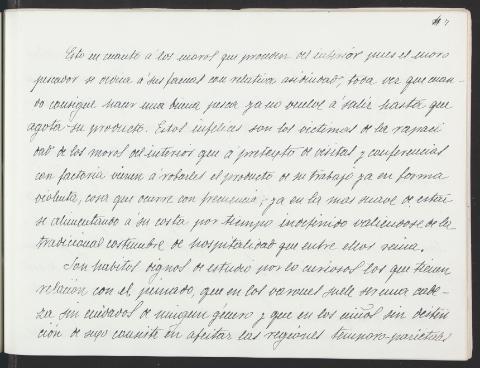 7
Esto en cuanto á los moros que proceden del interior pues el moro
pescador se dedica á sus faenas con relativa asiduidad, toda vez que cuan-
do consigue hacer una buena pesca ya no vuelve á salir hasta que
agota su producto. Estos infelices son las victimas de la rapaci
dad de los moros del interior que á pretexto de visitas y conferencias
con factoria vienen á robarles el producto de su trabajo ya en forma
violenta, cosa que ocurre con frecuencia; ya en la mas suave de estar
se alimentando á su costa por tiempo indefinido valiendose de la
tradicional costumbre de hospitalidad que entre ellos reina.
Son habitos dignos de estudio por lo curiosos los que tienen
relación con el peinado, que en los varones suele ser una cabe-
za sin cuidados de ningun género y que en los niños sin distin
ción de sexo consiste en afeitar las regiones temporo-parietales